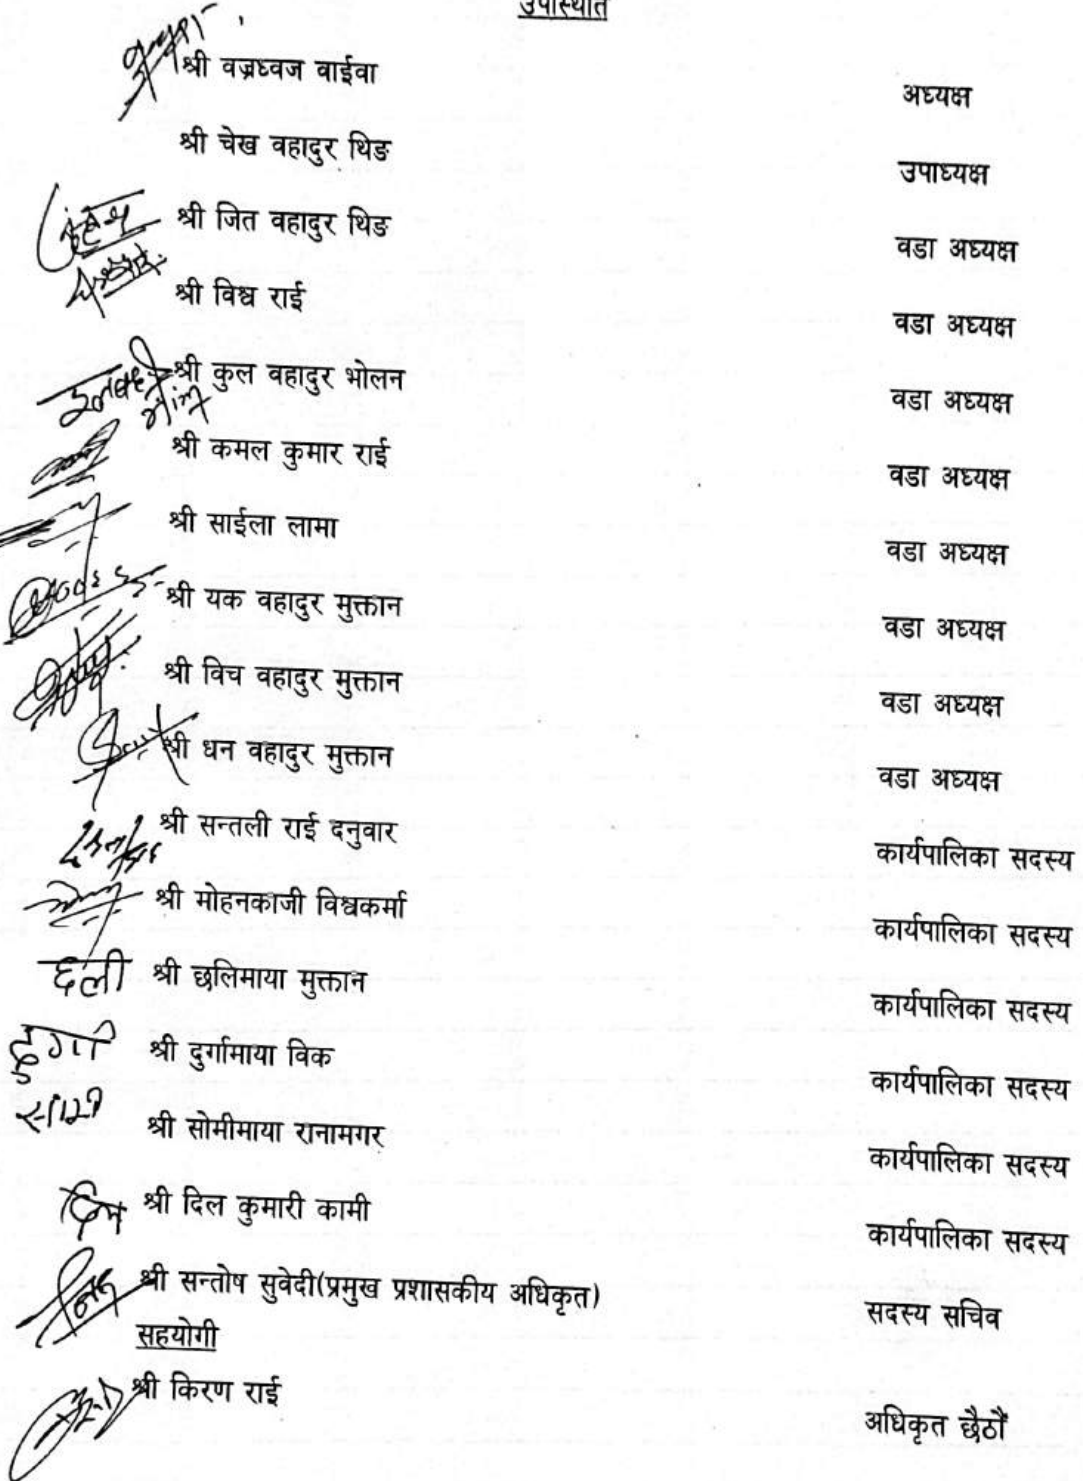 उपस्थिति
श्री वज्रध्वज वाईवा अध्यक्ष
श्री चेख वहादुर थिङ उपाध्यक्ष
श्री जित वहादुर थिङ वडा अध्यक्ष
श्री विश्व राई वडा अध्यक्ष
श्री कुल वहादुर भोलन वडा अध्यक्ष
श्री कमल कुमार राई वडा अध्यक्ष
श्री साईला लामा वडा अध्यक्ष
श्री यक वहादुर मुक्तान वडा अध्यक्ष
श्री विच वहादुर मुक्तान वडा अध्यक्ष
श्री धन वहादुर मुक्तान वडा अध्यक्ष
श्री सन्तली राई दनुवार कार्यपालिका सदस्य
श्री मोहनकाजी विश्वकर्मा कार्यपालिका सदस्य
छली श्री छलिमाया मुक्तान कार्यपालिका सदस्य
दुर्गा श्री दुर्गामाया विक कार्यपालिका सदस्य
श्री सोमीमाया रानामगर कार्यपालिका सदस्य
दिल श्री दिल कुमारी कामी कार्यपालिका सदस्य
श्री सन्तोष सुवेदी(प्रमुख प्रशासकीय अधिकृत) सदस्य सचिव
सहयोगी
श्री किरण राई अधिकृत छैठौं